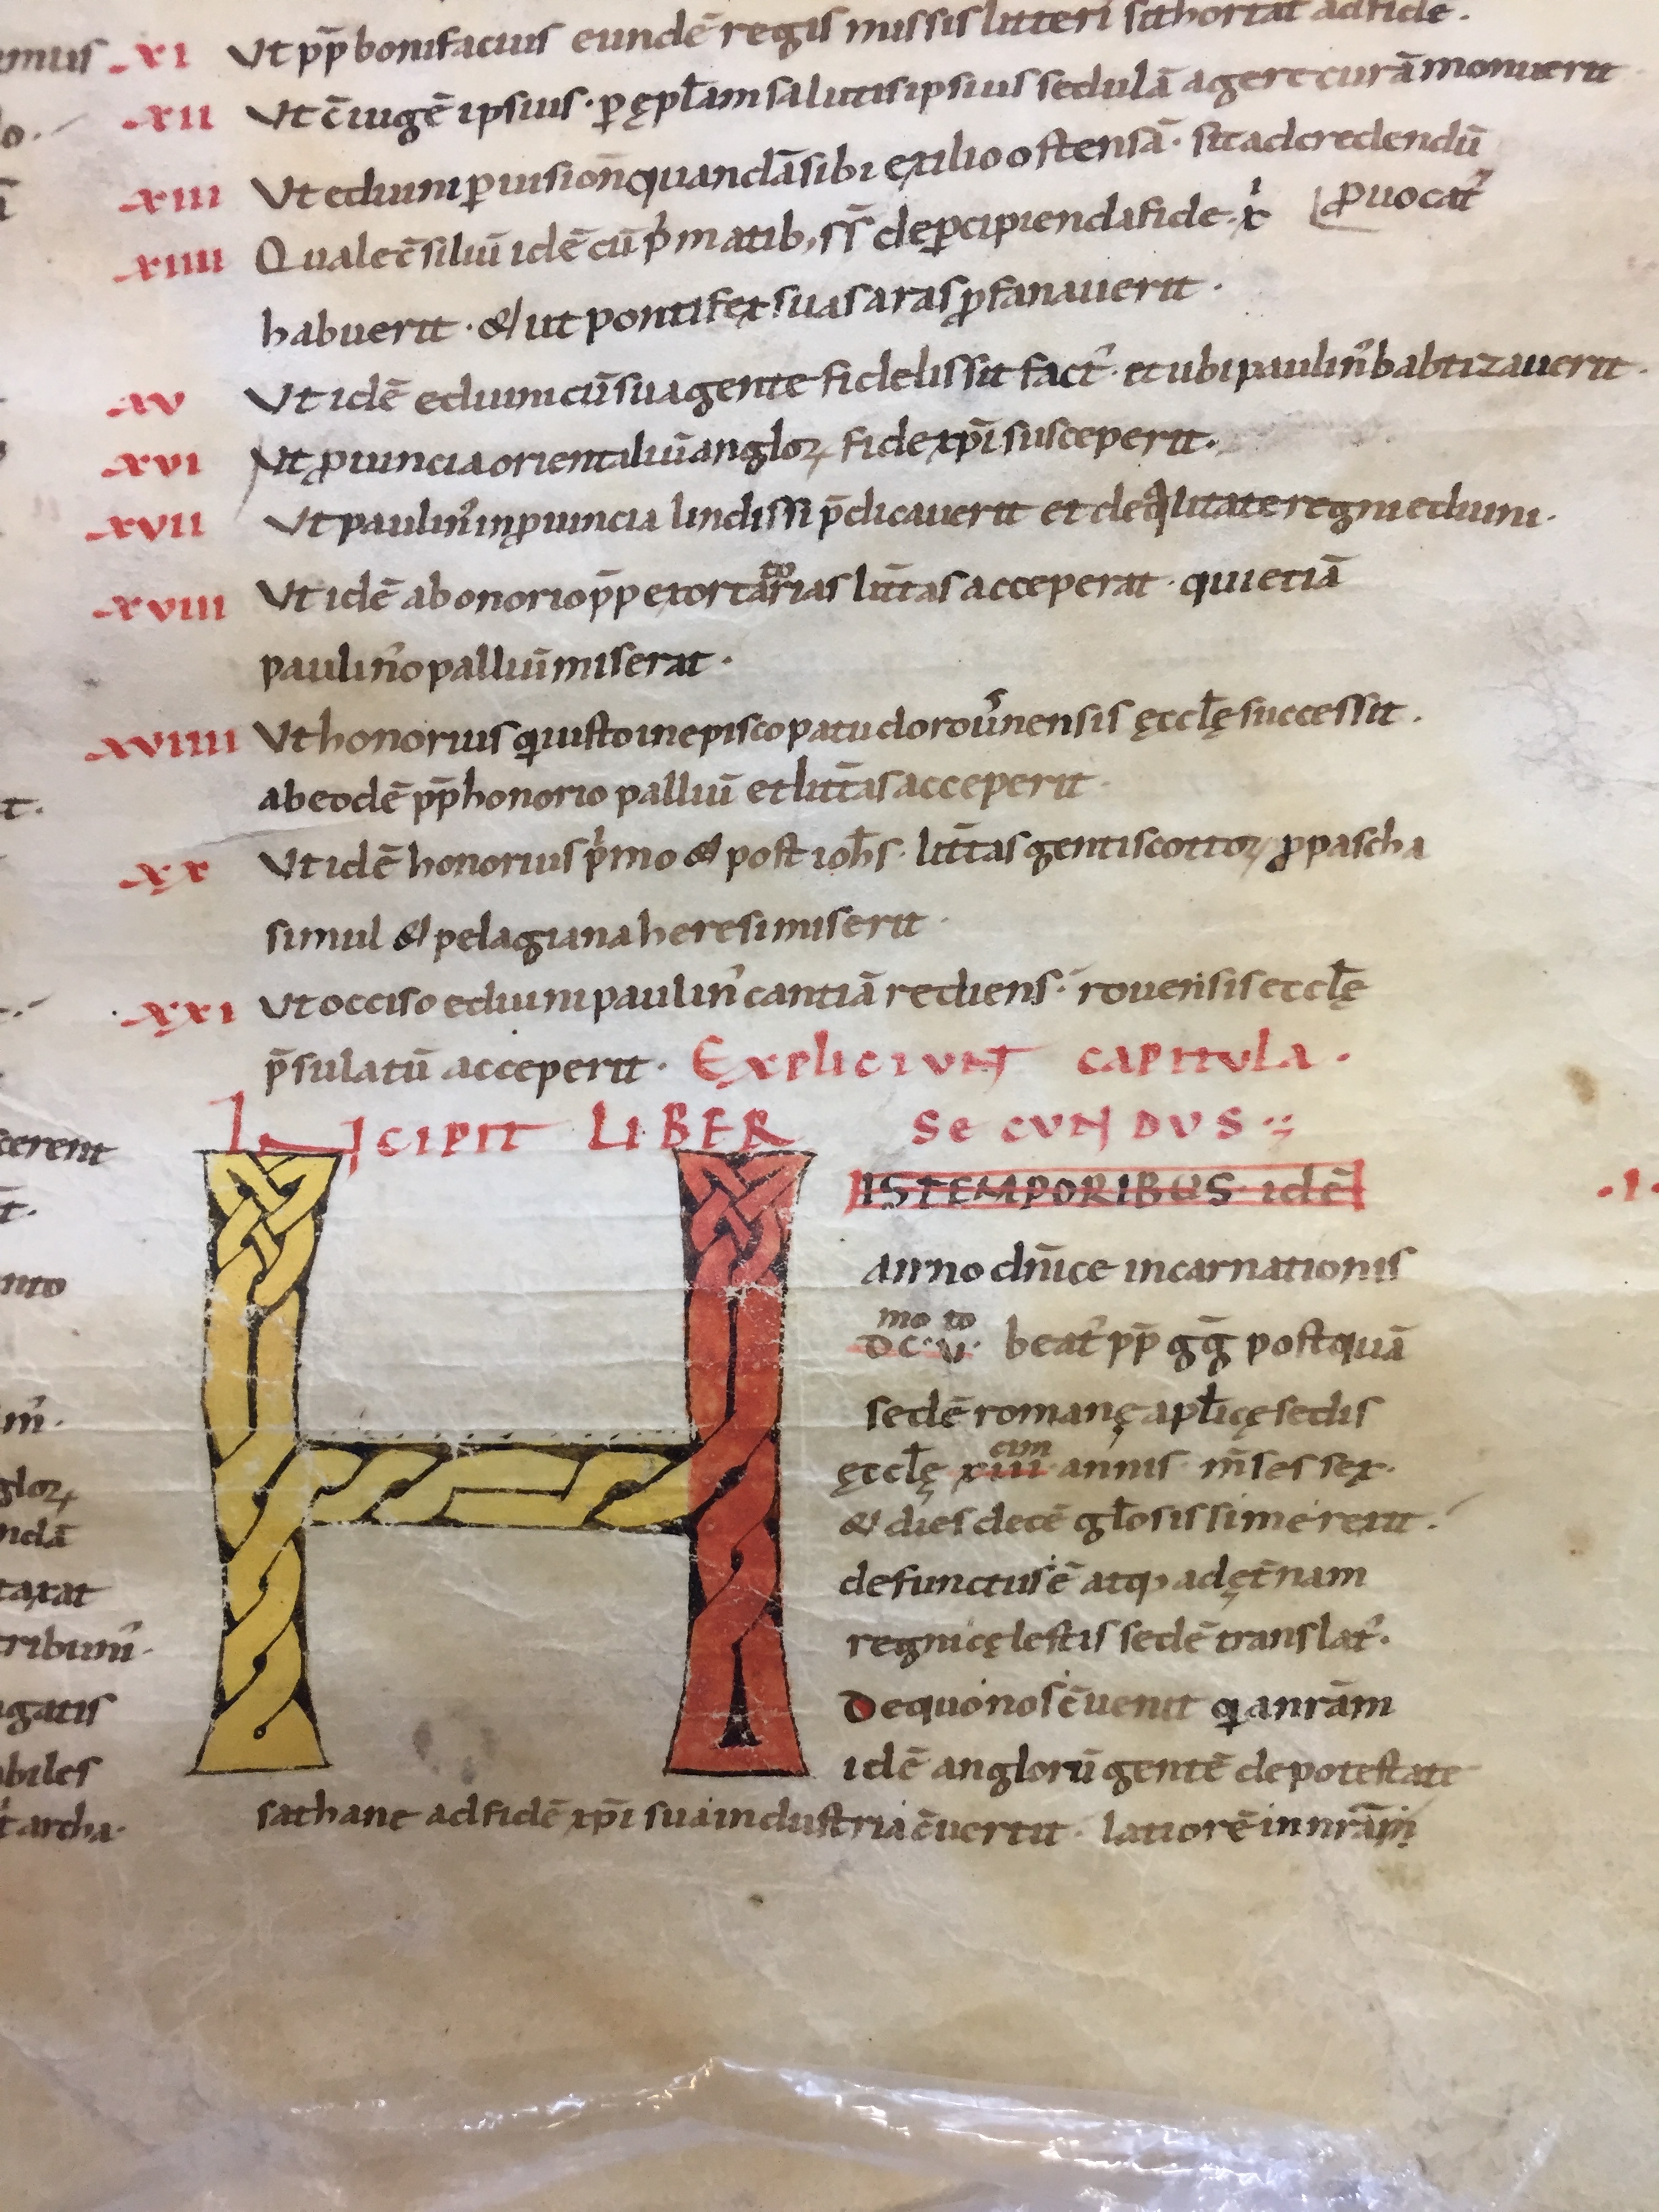 XI Ut pp̄ bonifacius eundē regis missis litteri sit hortat ad fidē.
XII Ut c̄iugē ipsius· p̱ ępłam salutis ipsius sedulā agere curā monuerit
XIII Ut eduuini p̱ uision̄ quandā sibi exilio ostensā· sit ad credendū
ꝓuocat᷒
XIIII Quale c̄siliū idē cū pͥmatib; s̄s̄ de p̱cipienda fide xͥ
habuerit· & ut pontifex suas aras ꝓfanauerit·
XV Ut idē eduuini cū sua gente fidelis sit fact᷒· et ubi paulin᷒ babtizauerit·
XVI Ut ꝓuincia orientaliū angloꝝ fidē xp̄i susceperit·
XVII Ut paulin᷒ in ꝓuincia lindissi p̄dicauerit et de qͣlitate regni eduuini·
XVIII Ut idē ab onorio pp̄ exortatorias litt̄as acceperat· qui etiā
paulin᷒o palliū miserat·
XVIIII Ut honorius qͥ iusto in episcopatu dorou᷒nensis ęccłę successit·
ab eodē pp̄ honorio palliū et litt̄as acceperit·
XX Ut idē honorius pͥmo & post ioh̄s· litt̄as genti scottoꝝ ꝓ pascha
simul & pelagiana heresi miserit·
XXI Ut occiso eduuini paulin᷒ cantiā rediens· rouensis eccłę
p̄sulatū acceperit· EXPLICIUNT CAPITULA·
INCIPIT LIBER SECUNDUS·:;
HIS TEMPORIBUS· idē ·I·
anno dn̄ice incarnationis
DC·moU·to beat᷒ pp̄ gḡ postquā
sedē romanę apłicę sedis
ęccłę xiiicim annis· m̄ses sex·
& dies decē głosissime rexit·
defunctus ē atq; ad ęt̄nam
regni cęlestis sedē translat᷒·
De quo nos c̄uenit qͥa nr̄am
idē anglorū gentē de potestate
sathane ad fidē xp̄i sua industria c̄uertit· latiorē in nr̄am